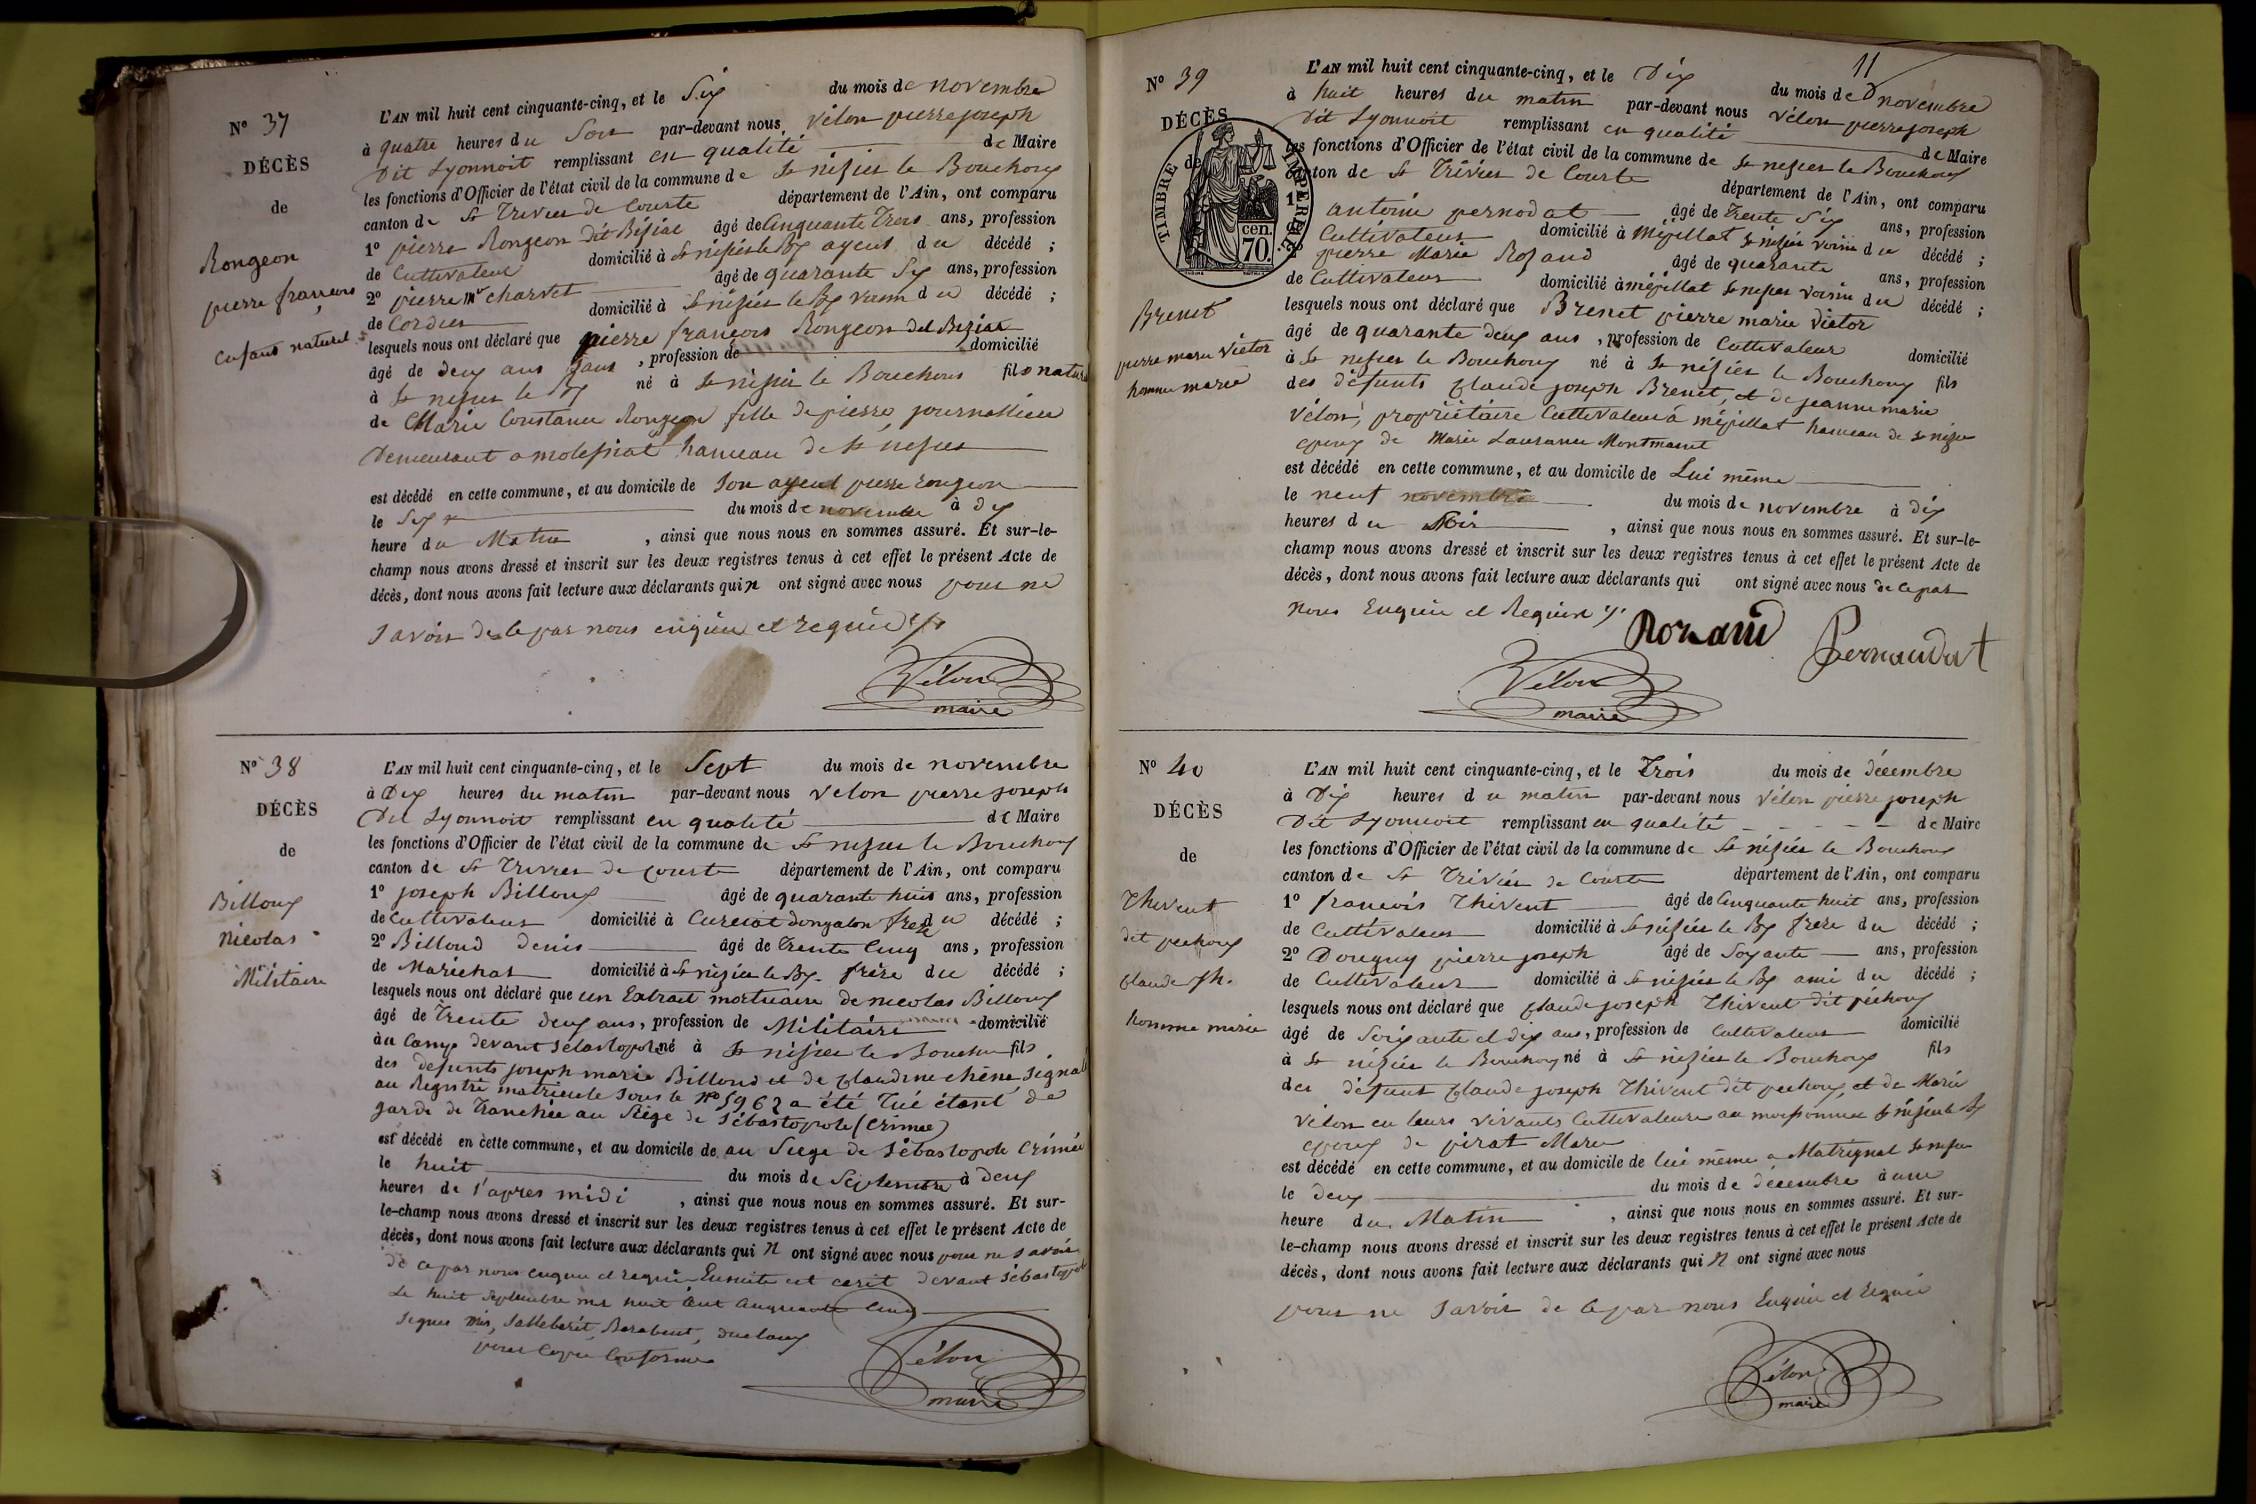 N° 37
DÉCÈS
de
Rongeon
pierre francois
enfant naturel
L'AN mil huit cent cinquante-cinq, et le Six du mois de novembre
à quatre heures du Soir par-devant nous vélon pierre joseph
Dit Lyonnoit remplissant en qualité de Maire
les fonctions d'Officier de l'état civil de la commune de St nizier le Bouchoux
canton de St Trivier de Courte département de l'Ain, ont comparu
1° pierre Rongeon Dit Béziat âgé de Cinquante Trois ans, profession
de Cultivateur domicilié à St nizier le Bx ayeul du décédé ;
2° pierre Mie charvet âgé de quarante Six ans, profession
de Cordier domicilié à St nizier le Bx voisin du décédé ;
lesquels nous ont déclaré que pierre francois Rongeon dit Beziat
âgé de deux ans , profession de domicilié
à St nizier le Bx né à St nizier le Bouchoux fils naturel
de Marie Constance Rongeon fille de pierre journallière
Demeurant a molessiat hameau de St nizier
est décédé en cette commune, et au domicile de Son ayeul pierre rongeon
le Six du mois de novembre à dix
heure du Matin , ainsi que nous nous en sommes assuré. Et sur-le-
champ nous avons dressé et inscrit sur les deux registres tenus à cet effet le présent Acte de
décès, dont nous avons fait lecture aux déclarants qui n ont signé avec nous pour ne
Savoir de ce par nous enquie et requie
Vélon
maire
N° 38
DÉCÈS
de
Billoux
Nicolas
Militaire
L'AN mil huit cent cinquante-cinq, et le Sept du mois de novembre
à Dix heures du matin par-devant nous velon pierre joseph
Dit Lyonnoit remplissant en qualité de Maire
les fonctions d'Officier de l'état civil de la commune de St nizier le Bouchoux
canton de St Trivier de courte département de l'Ain, ont comparu
1° joseph Billoux âgé de quarante huit ans, profession
de Cultivateur domicilié à Curciat dongalon frere du décédé ;
2° Billoud denis âgé de Trente Cinq ans, profession
de Maréchal domicilié à St nizier le Bx frère du décédé ;
lesquels nous ont déclaré que un Extrait mortuaire de nicolas Billoux
âgé de Trente deux ans, profession de Militaire domicilié
au Camp devant Sébastopole né à St nizier le Bouchoux fils
des defunts joseph marie Billoud et de claudine chêne, Signalé
au Registre matricule Sous le N° 5962 a été Tué étant de
garde de Tranchée au Siège de Sébastopole (Crimee)
est décédé en cette commune, et au domicile de au Siege de Sébastopole Crimée
le huit du mois de Septembre à deux
heures de l'apres midi , ainsi que nous nous en sommes assuré. Et sur-
le-champ nous avons dressé et inscrit sur les deux registres tenus à cet effet le présent Acte de
décès, dont nous avons fait lecture aux déclarants qui n ont signé avec nous pour ne savoir
de ce par nous enquie et requie Ensuite est ecrit devant Sébastopol
Le huit Septembre mil huit cent Cinquante Cinq
Signes Mis, Salleberét, Barabent, duclaux
pour Copie Conforme
Vélon
maire
11
N° 39
DÉCÈS
de
TIMBRE IMPERIAL
cen.
70.
Brenet
pierre marie victor
homme marié
L'AN mil huit cent cinquante-cinq, et le Dix du mois de novembre
à huit heures du matin par-devant nous vélon pierre joseph
Dit Lyonnoit remplissant en qualité de Maire
les fonctions d'Officier de l'état civil de la commune de St nizier le Bouchoux
canton de St Trivier de Courte département de l'Ain, ont comparu
1° antoine pernodat âgé de Trente Six ans, profession
Cultivateur domicilié à Mépillat St nizier voisin du décédé ;
pierre Marie Rozand âgé de quarante ans, profession
de Cultivateur domicilié à mépillat St nizier voisin du décédé ;
lesquels nous ont déclaré que Brenet pierre marie victor
âgé de quarante deux ans , profession de Cultivateur domicilié
à St nizier le Bouchoux né à St nizier le Bouchoux fils
des défunts Claude joseph Brenet, et de jeanne marie
Vélon, propriètaire Cultivateur à mépillat hameau de St nizier
epoux de Marie Laurance Montmaint
est décédé en cette commune, et au domicile de Lui même
le neuf novembre du mois de novembre à dix
heures du Soir , ainsi que nous nous en sommes assuré. Et sur-le-
champ nous avons dressé et inscrit sur les deux registres tenus à cet effet le présent Acte de
décès, dont nous avons fait lecture aux déclarants qui ont signé avec nous de ce par
nous Enquie et Requie
Rozand
Pernaudat
Vélon
maire
N° 40
DÉCÈS
de
Thivent
dit pechoux
claude jh.
homme marié
L'AN mil huit cent cinquante-cinq, et le Trois du mois de décembre
à Dix heures du matin par-devant nous vélon pierre joseph
Dit Lyonnoit remplissant en qualité de Maire
les fonctions d'Officier de l'état civil de la commune de St nizier le Bouchoux
canton de St Trivier de Courte département de l'Ain, ont comparu
1° francois Thivent âgé de Cinquante huit ans, profession
de Cultivateur domicilié à St nizier le Bx frere du décédé ;
2° Dougny pierre joseph âgé de Soixante ans, profession
de Cultivateur domicilié à St nizier le Bx ami du décédé ;
lesquels nous ont déclaré que Claude joseph Thivent dit péchoux
âgé de Soixante et dix ans, profession de Cultivateur domicilié
à St nizier le Bouchoux né à St nizier le Bouchoux fils
des défunt Claude joseph Thivent dit pechoux et de Marie
Vélon en leurs vivants Cultivateurs au moissonnier St nizier le Bx
epoux de pirat Marie
est décédé en cette commune, et au domicile de lui même a Matrignat St nizier
le deux du mois de décembre à une
heure du Matin , ainsi que nous nous en sommes assuré. Et sur-
le-champ nous avons dressé et inscrit sur les deux registres tenus à cet effet le présent Acte de
décès, dont nous avons fait lecture aux déclarants qui n ont signé avec nous
pour ne Savoir de ce par nous Enquie et requie
Vélon
maire